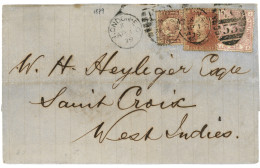 1879
LONDON
53
W. H. Heyliger Esqre
Saint Croix
West Indies.